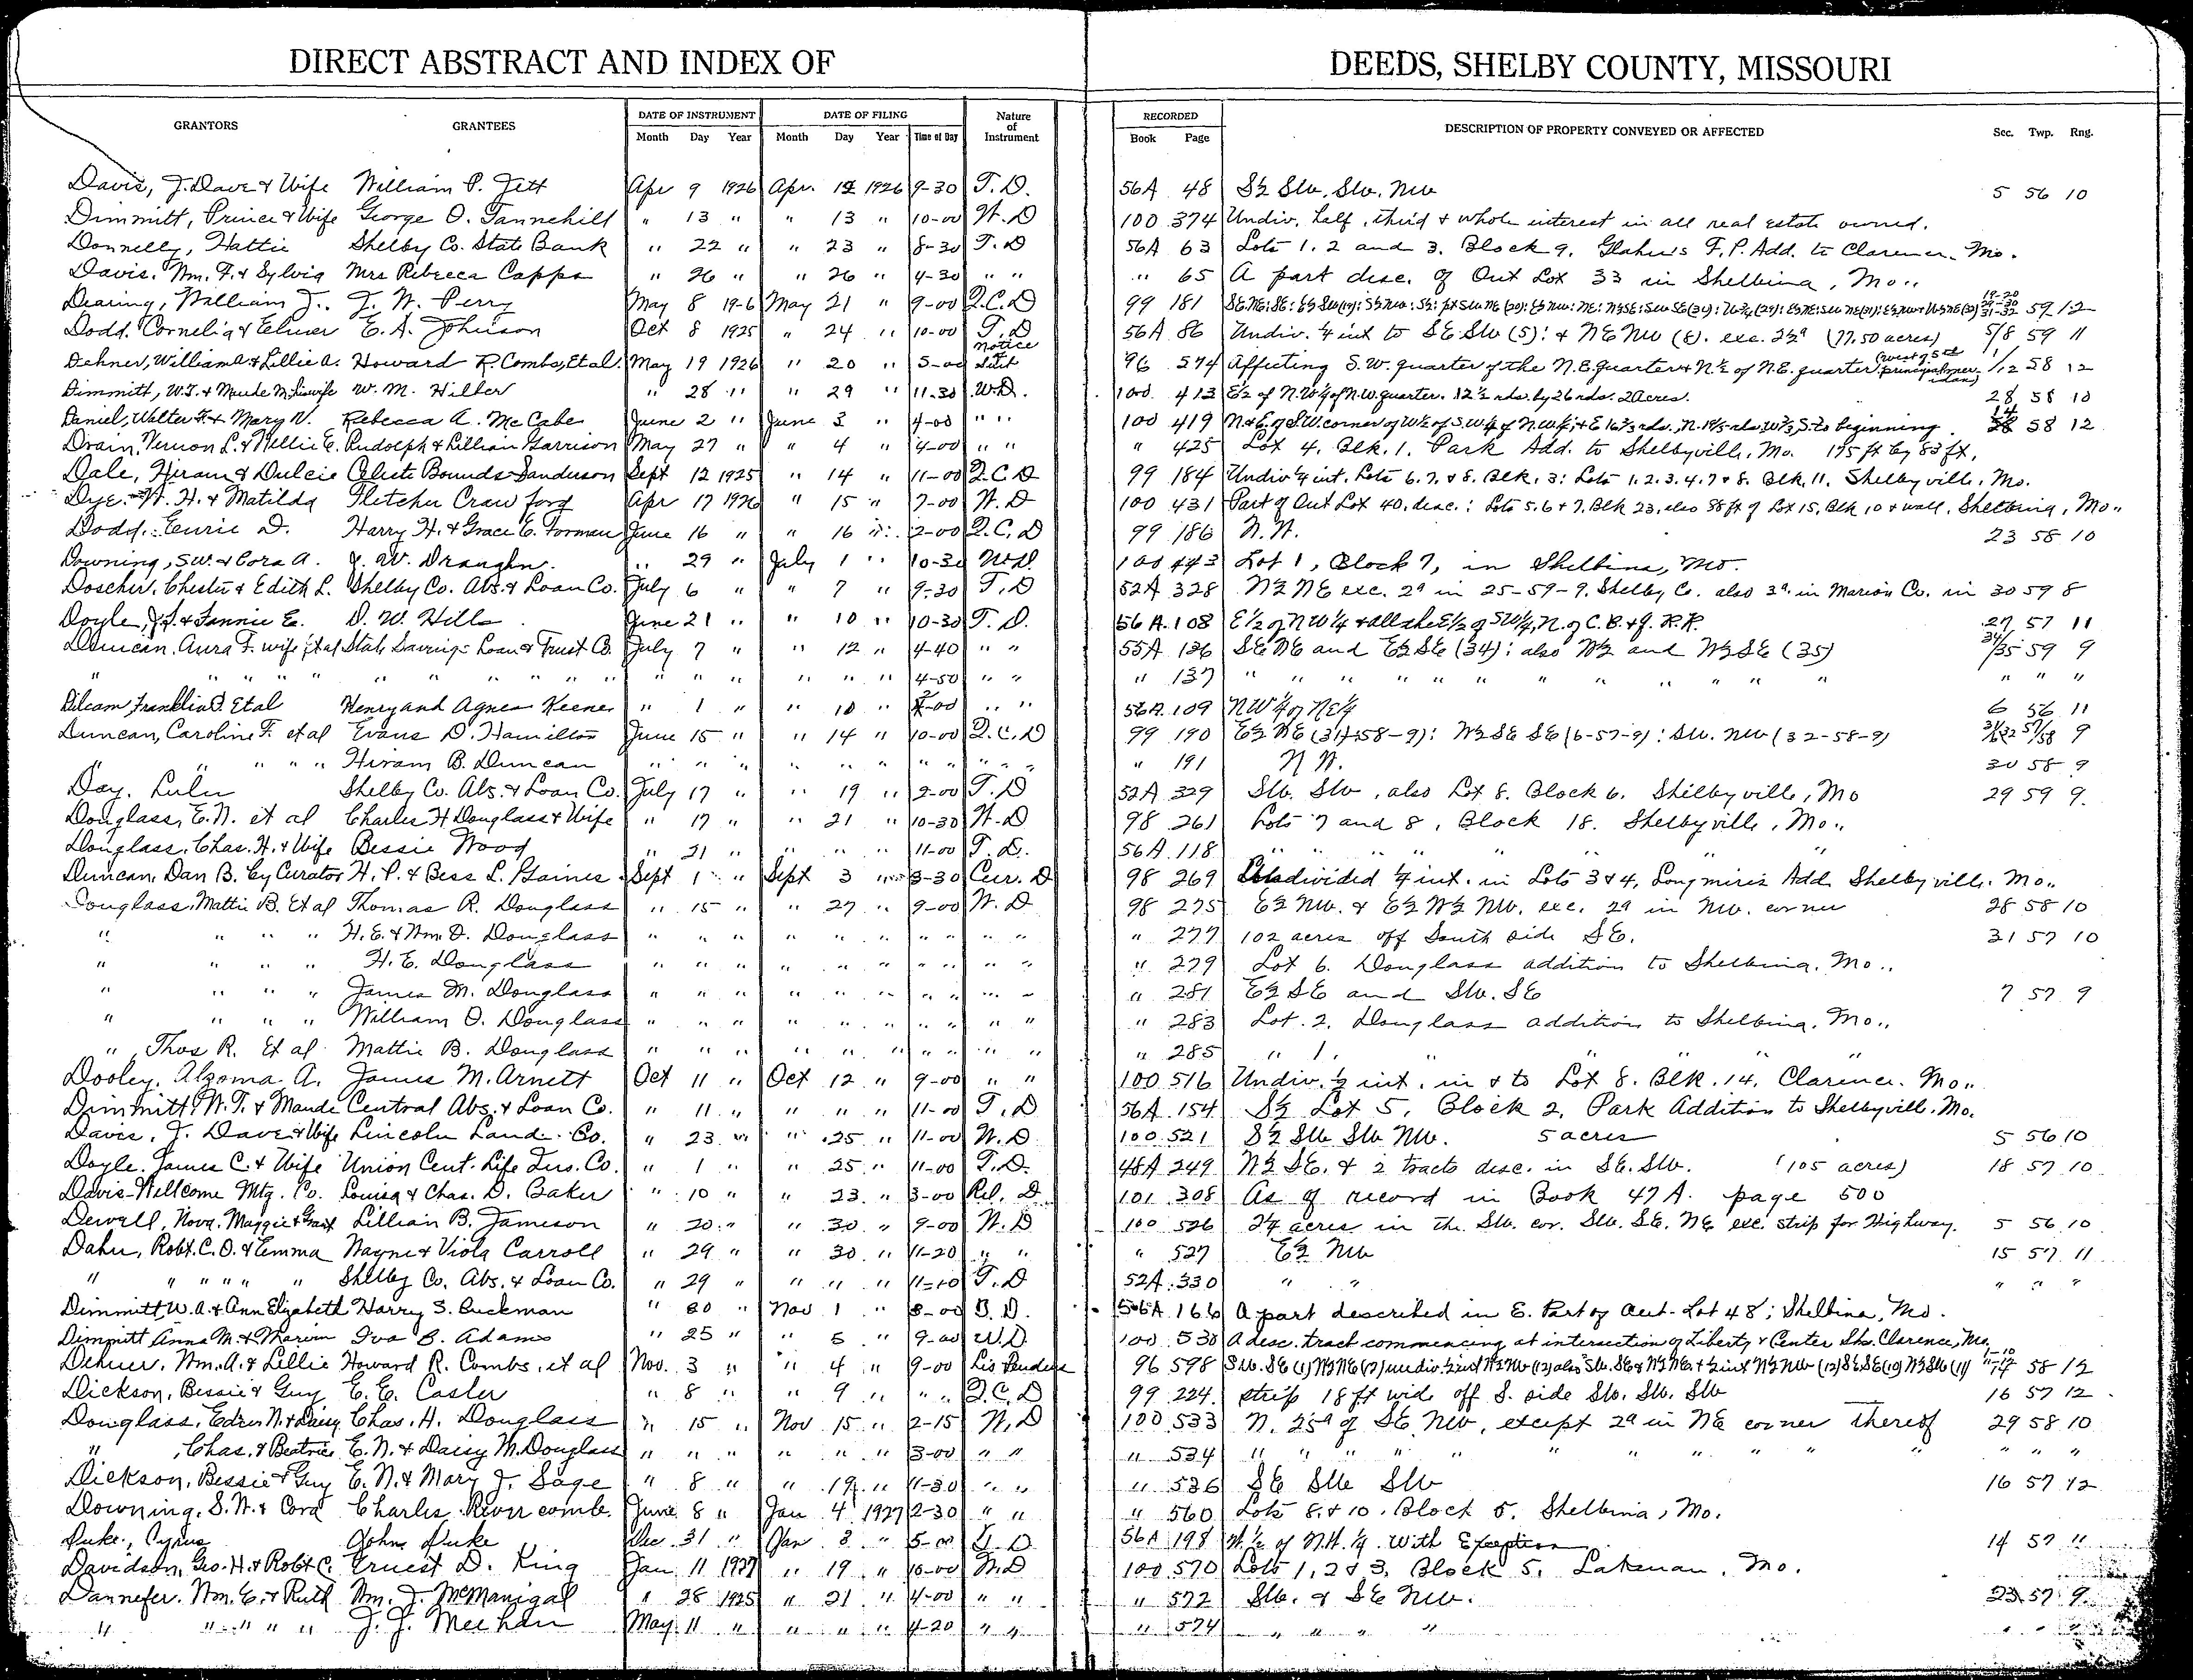 DIRECT ABSTRACT AND INDEX OF DEEDS, SHELBY COUNTY, MISSOURI
GRANTORS GRANTEES DATE OF INSTRUMENT DATE OF FILING Nature of Instrument RECORDED DESCRIPTION OF PROPERTY CONVEYED OR AFFECTED Sec. Twp. Rng.
Month Day Year Month Day Year Time of Day Book Page
Davis, J. Dave & Wife William P. Jett Apr 9 1926 Apr. 1926 9-30 T.D. 56A 48 S½ SW. SW. NW 5 56 10
Dimmitt, Prince & Wife George O. Tannehill " 13 " " 13 " 10-00 W.D 100 374 Undiv. half, third & whole interest in all real estate owned.
Donnelly, Hattie Shelby Co. State Bank " 22 " " 23 " 8-30 T.D 56A 63 Lots 1, 2 and 3. Block 9. F.P. Add. to Clarence. Mo.
Davis. Wm. F. & Sylvia Mrs Rebecca Capps " 26 " " 26 " 4-30 " " " 65 A part desc. of Out Lot 33 in Shelbina, Mo..
Dearing, William J. J. W. Perry May 8 19-6 May 21 " 9-00 Q.C.D 99 181 59 12
Dodd. Cornelia & Elmer E. A. Johnson Oct 8 1925 " 24 " 10-00 T.D 56A 86 Undiv. ¼ int to SE SW (5): & NE NW (8). exc. 2½ª (77.50 acres) 5/8 59 11
Dehner, William A. & Lillie A. Howard R. Combs, Et al. May 19 1926 " 20 " 5-00 notice 96 574 Affecting S.W. quarter of the N.E. quarter & N.½ of N.E. quarter (west of 5th principal meridian) 1/12 58 12
Dimmitt, W.T. & Maude M. his wife W. M. Hilber " 28 " " 29 " 11.30 W.D. 100 413 E½ of N.W.¼ of N.W. quarter. 12½ rds. by 26 rds. 2 Acres. 28 58 10
Daniel, Walter F. & Mary V. Rebecca A. McCabe June 2 " June 3 " 4-00 " " 100 419 N. & E. of S.W. corner of W½ of S.W.¼ of N.W.¼; S. to beginning. 14 58 12
Drain, Vernon L. & Nellie E. Rudolph & Lillian Garrison May 27 " " 4 " 4-00 " " " 425 Lot 4, Blk. 1. Park Add. to Shelbyville, Mo. 175 ft by 83 ft.
Dale, Hiram & Dulcie Celiete Bounds Sanderson Sept 12 1925 " 14 " 11-00 Q.C.D 99 184 Undiv ¼ int. Lots 6. 7. & 8. Blk. 3: Lots 1. 2. 3. 4. 7 & 8. Blk. 11. Shelbyville. Mo.
Dye. W. H. & Matilda Fletcher Crawford Apr 17 1926 " 15 " 7-00 W.D 100 431 Part of Out Lot 40, desc.: Lots 5. 6 & 7. Blk 23, also 58 ft of Lot 15, Blk 10 & wall, Shelbina, Mo..
Dodd. Eurie D. Harry H. & Grace E. Forman June 16 " " 16 " 2-00 Q.C.D 99 186 N.W. 23 58 10
Downing, S.W. & Cora A. J. W. Draughn. " 29 " July 1 " 10-30 W.D. 100 443 Lot 1, Block 7, in Shelbina, Mo.
Doscher, Chester & Edith L. Shelby Co. Abs. & Loan Co. July 6 " " 7 " 9-30 T.D 52A 328 N½ NE exc. 2ª in 25-59-9. Shelby Co. also 3ª. in Marion Co. in 30 59 8
Doyle, J.S. & Fannie E. D. W. Hills June 21 " " 10 " 10-30 T.D. 56A. 108 E½ of NW¼ & all the E½ of SW¼, N. of C.B. & Q. R.R. 27 57 11
Duncan, Aura F. wife et al State Savings Loan & Trust Co. July 7 " " 12 " 4-40 " " 55A 136 SE NE and E½ SE (34); also W½ and W½ SE (35) 34/35 59 9
" " " " " " " " " " " " " " " " " 4-50 " " " 137 " " " " " " " " " " " " "
Franklin Et al Henry and Agnes Keener " 1 " " 10 " 2-00 " " 56A. 109 NW¼ of NE¼ 6 56 11
Duncan, Caroline F. et al Evans D. Hamilton June 15 " " 14 " 10-00 Q.C.D 99 190 E½ NE (31-58-9): W½ SE SE (6-57-9): SW. NW (32-58-9) 57/58 9
" " " " Hiram B. Duncan " " " " " " " " " " 191 N W. 30 58 9
Day. Lulu Shelby Co. Abs. & Loan Co. July 17 " " 19 " 9-00 T.D 52A 329 SW. SW, also Lot 8. Block 6. Shelbyville, Mo 29 59 9.
Douglass, E.N. et al Charles H Douglass & Wife " 17 " " 21 " 10-30 W.D 98 261 Lots 7 and 8, Block 18. Shelbyville, Mo..
Douglass. Chas. H. & Wife Bessie Wood " 21 " " " " 11-00 T.D. 56A. 118 " " " " " "
Duncan, Dan B. by Curator H. P. & Bess L. Gaines Sept 1 " Sept 3 " 3-30 Cur. D 98 269 Undivided ¼ int. in Lots 3 & 4, Longmires Add. Shelbyville. Mo..
Douglass, Mattie B. Et al Thomas R. Douglass " 15 " " 27 " 9-00 W.D 98 275 E½ NW. & E½ W½ NW. exc. 2ª in NW. corner 28 58 10
" " " " H. E. & Wm. O. Douglass " " " " " " " " " " 277 102 acres off South side SE. 31 57 10
" " " " H. E. Douglass " " " " " " " " " " 279 Lot 6. Douglass addition to Shelbina. Mo..
" " " " James M. Douglass " " " " " " " " " " 281 E½ SE and SW. SE 7 57 9
" " " " William O. Douglass " " " " " " " " " " 283 Lot. 2. Douglass addition to Shelbina. Mo..
" , Thos R. Et al Mattie B. Douglass " " " " " " " " " " 285 " 1. " " "
Dooley, Alzoma A. James M. Arnett Oct 11 " Oct 12 " 9-00 " " 100 516 Undiv. ½ int. in & to Lot 8. Blk. 14. Clarence. Mo..
Dimmitt, W.T. & Maude Central Abs. & Loan Co. " 11 " " " " 11-00 T.D 56A. 154 S½ Lot 5, Block 2, Park Addition to Shelbyville, Mo.
Davis, J. Dave & Wife Lincoln Land Co. " 23 " " 25 " 11-00 W.D 100 521 S½ SW SW NW. 5 acres 5 56 10
Doyle. James C. & Wife Union Cent. Life Ins. Co. " 1 " " 25 " 11-00 T.D. 48A 249 N½ SE. & 2 tracts desc. in SE. SW. (105 acres) 18 57 10
Davis-Wellcome Mtg. Co. Louisa & Chas. D. Baker " 10 " " 23 " 3-00 Rel. D. 101 308 As of record in Book 47A. page 500
Dewell, Nova. Maggie & Grant Lillian B. Jameson " 20 " " 30 " 9-00 W.D 100 526 2¼ acres in the SW. cor. SW. SE. NE exc. strip for Highway. 5 56 10
Dahn, Robt. C. O. & Emma Wayne & Viola Carroll " 29 " " 30 " 11-20 " " " 527 E½ NW 15 57 11
" " " " " " Shelby Co. Abs. & Loan Co. " 29 " " " " 11-10 T.D 52A. 330 " " " " "
Dimmitt, W.A. & Ann Elizabeth Harry S. Buckman " 30 " Nov 1 " 8-00 D.D. 56A 166 A part described in E. Part of Out-Lot 48; Shelbina, Mo.
Dimmitt Anna M. & Marvin Iva B. Adams " 25 " " 5 " 9-00 W.D 100 530 A desc. tract commencing at intersection of Liberty & Center Sts. Clarence, Mo.
Dehner, Wm. A. & Lillie Howard R. Combs. et al Nov. 3 " " 4 " 9-00 Lis Pendens 96 598 58 12
Dickson, Bessie & Guy E. E. Casler " 8 " " 9 " " " Q.C.D 99 224. strip 18 ft wide off S. side SW. SW. SW 16 57 12
Douglass, Edris N. & Daisy Chas. H. Douglass " 15 " Nov 15 " 2-15 W.D 100 533 N. 25ª of SE NW, except 2ª in NE corner thereof 29 58 10
" , Chas. & Beatrice E. N. & Daisy M. Douglass " " " " " " 3-00 " " " 534 " " " " " " " " " " " " "
Dickson, Bessie & Guy E. N. & Mary J. Sage " 8 " " 19 " 11-30 " " " 536 SE SW SW 16 57 12
Downing, S. W. & Cora Charles Rivercombe. June 8 " Jan 4 1927 2-30 " " " 560 Lots 8 & 10. Block 5. Shelbina, Mo.
Duke, Cyrus John Duke Dec 31 " Jan 3 " 5-00 D 56A 198 W.½ of N.W.¼ With Exception 14 57 11
Davidson, Geo. H. & Robt C. Ernest D. King Jan 11 1927 " 19 " 10-00 W.D 100 570 Lots 1, 2 & 3, Block 5, Lakenan, Mo.
Dannefer. Wm. E. & Ruth Wm. J. McManigal " 28 1925 " 21 " 4-00 " " " 572 SW. & SE NW. 23 57 9
" " " " " J. J. Meehan May 11 " " " " 4-20 " " " 574 " " " " " " "